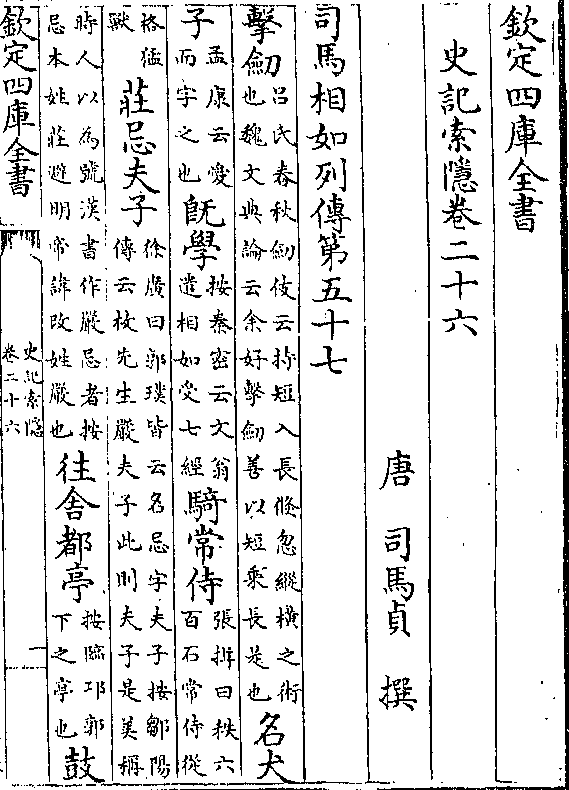 欽定四庫全書
史記索隱卷二十六
唐 司馬貞 撰
司馬相如列傳第五十七
擊劒呂氏春秋劒伎云持短入長倐忽縱橫之術也魏文典論云余好擊劒善以短乘長是也名犬
子孟康云愛而字之也既學按秦密云文翁遣相如受七經騎常侍張揖曰秩六百石常侍從
格猛獸莊忌夫子徐廣曰郭璞皆云名忌字夫子按鄒陽傳云枚先生嚴夫子此則夫子是美稱
時人以為號漢書作嚴忌者按忌本姓莊避明帝諱改姓嚴也往舍都亭按臨邛郭下之亭也鼓
欽定四庫全書
史記索隱
卷二十六
一